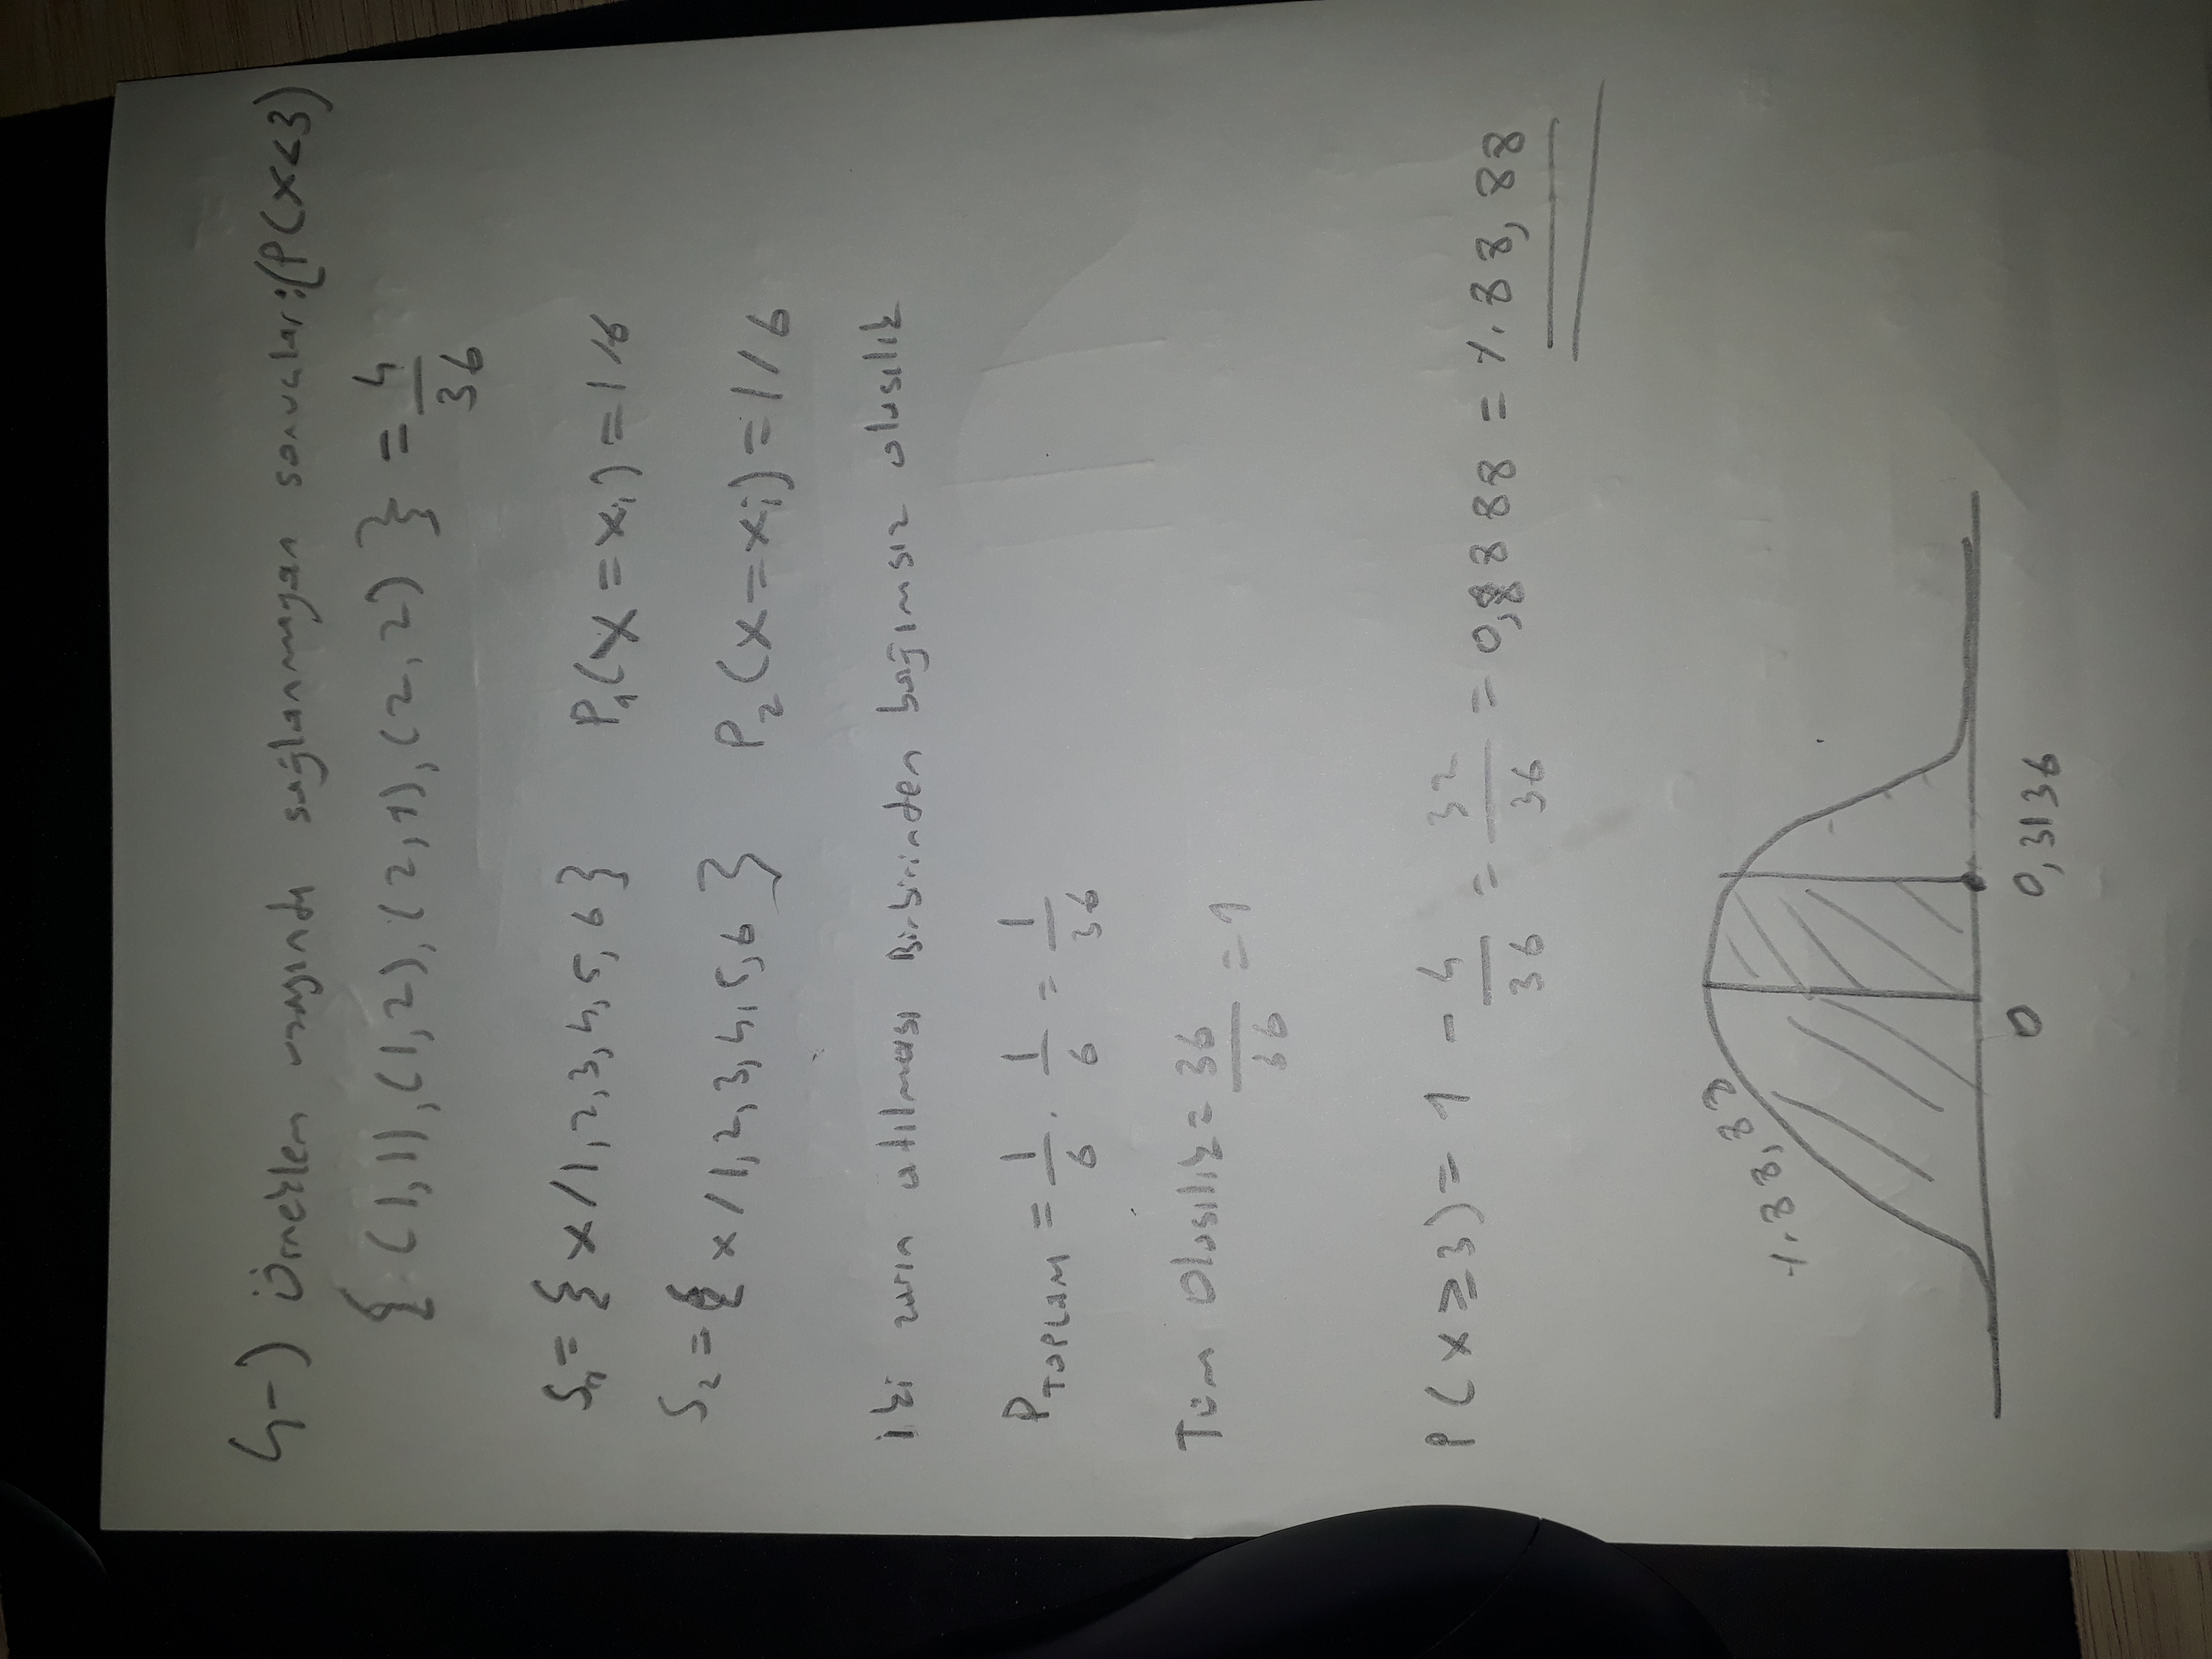 4-) Örneklem uzayında sağlanmayan sonuçlar:(P(X<3)
{(1,1),(1,2),(2,1),(2,2)} = 4/36
S1 = {x/1,2,3,4,5,6} P1(X=xi)=1/6
S2 = {x/1,2,3,4,5,6} P2(X=xi)=1/6
iki zarın atılması Birbirinden bağımsız olasılık
PTOPLAM = 1/6 . 1/6 = 1/36
Tüm Olasılık = 36/36 = 1
P(x≥3) = 1 - 4/36 = 32/36 = 0,8888 = %88,88
%88,88
0 0,3136